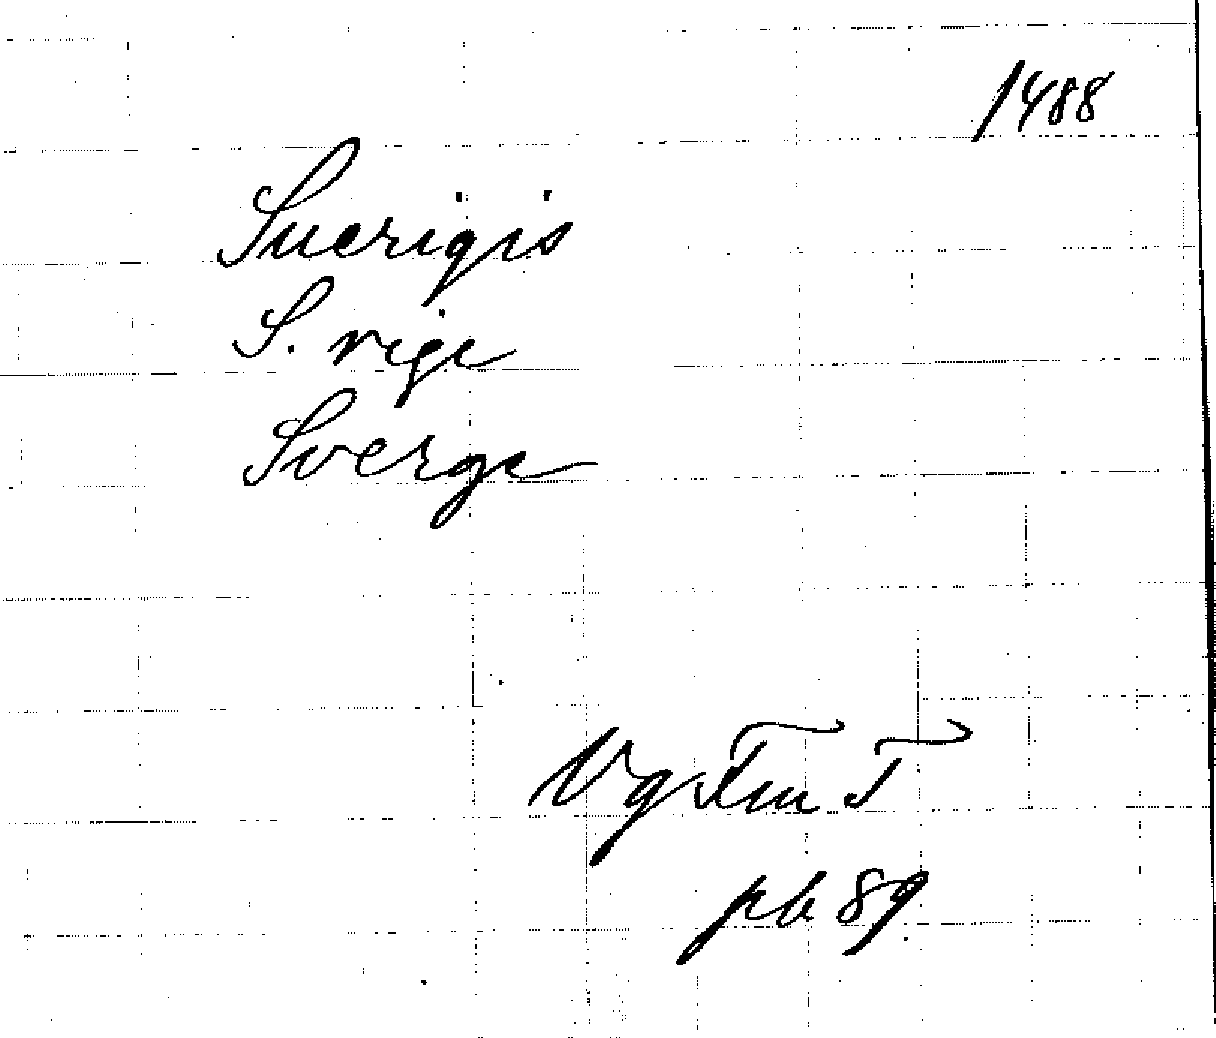 1488
Suerigis
S. rige
Sverge
Vg Fm T
pb 89.